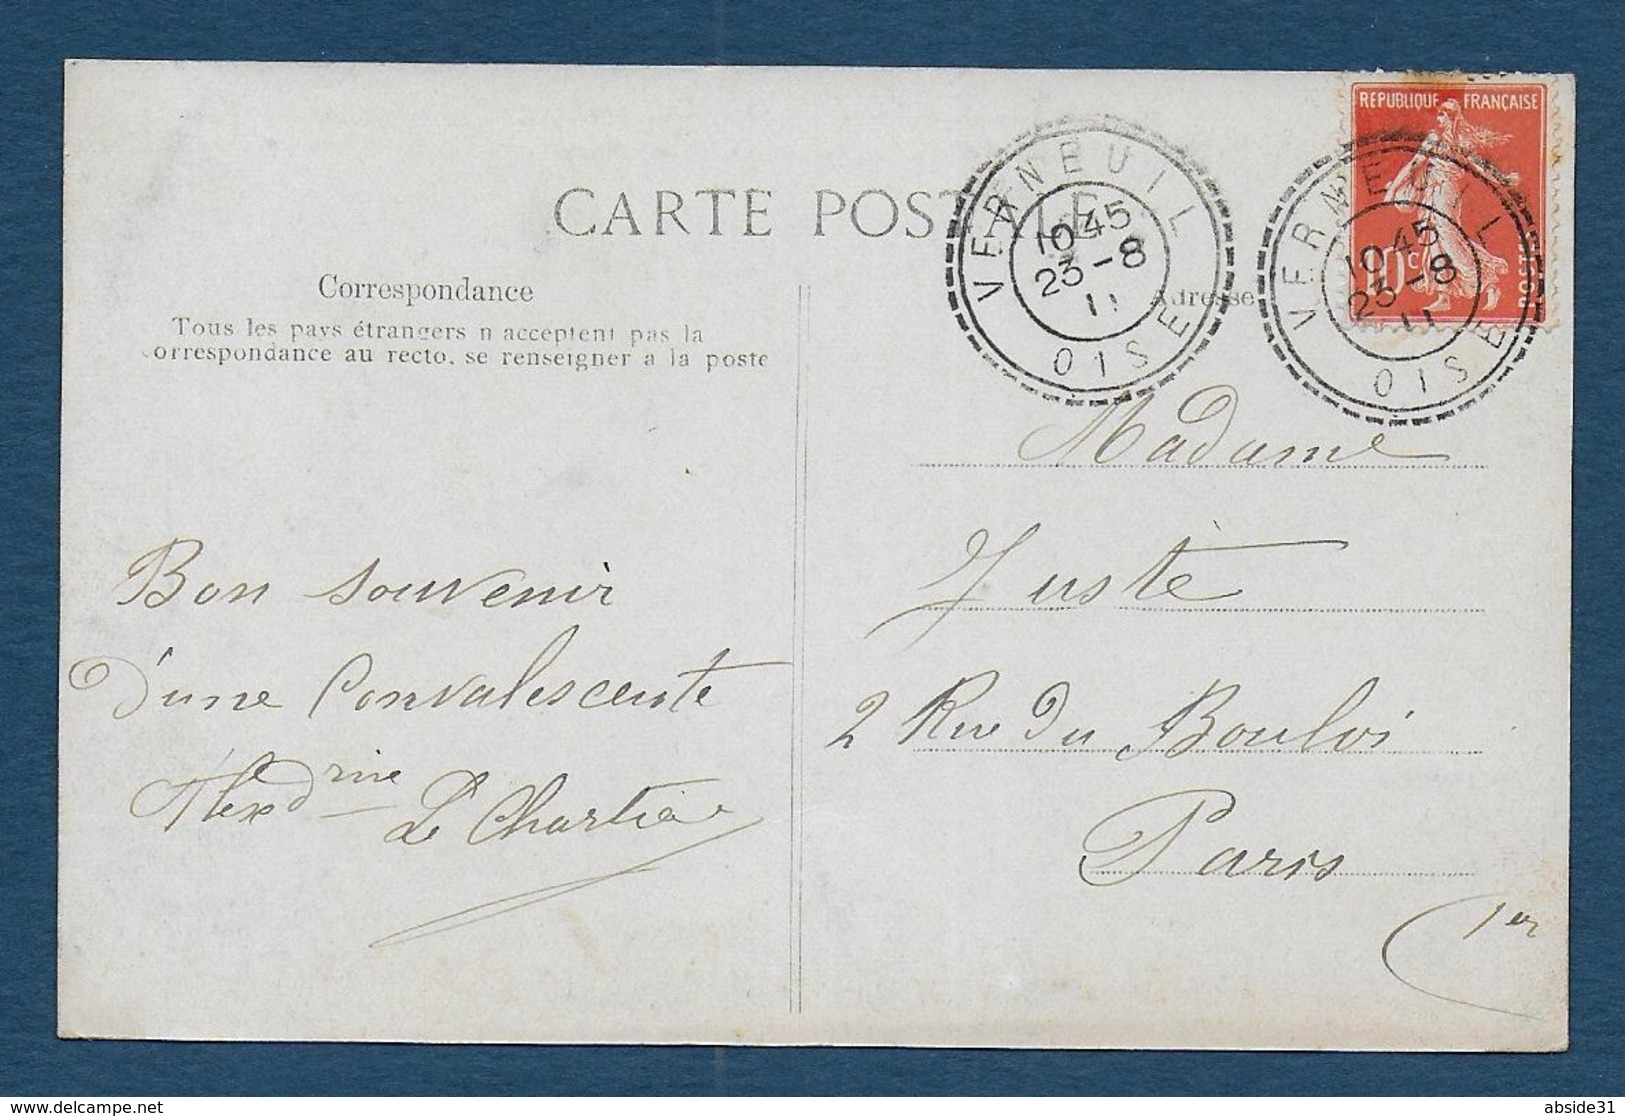 REPUBLIQUE FRANÇAISE
10c
POSTES
VERNEUIL
10 45
23 - 8
11
OISE
VERNEUIL
10 45
23 - 8
11
OISE
CARTE POSTALE
Correspondance
Adresse
Tous les pays étrangers n acceptent pas la
correspondance au recto, se renseigner a la poste
Bon souvenir
d'une Convalescente
Alexdrine Le Chartier
Madame
Juste
2 Rue du Bouloi
Paris
1er
© delcampe.net
abside31